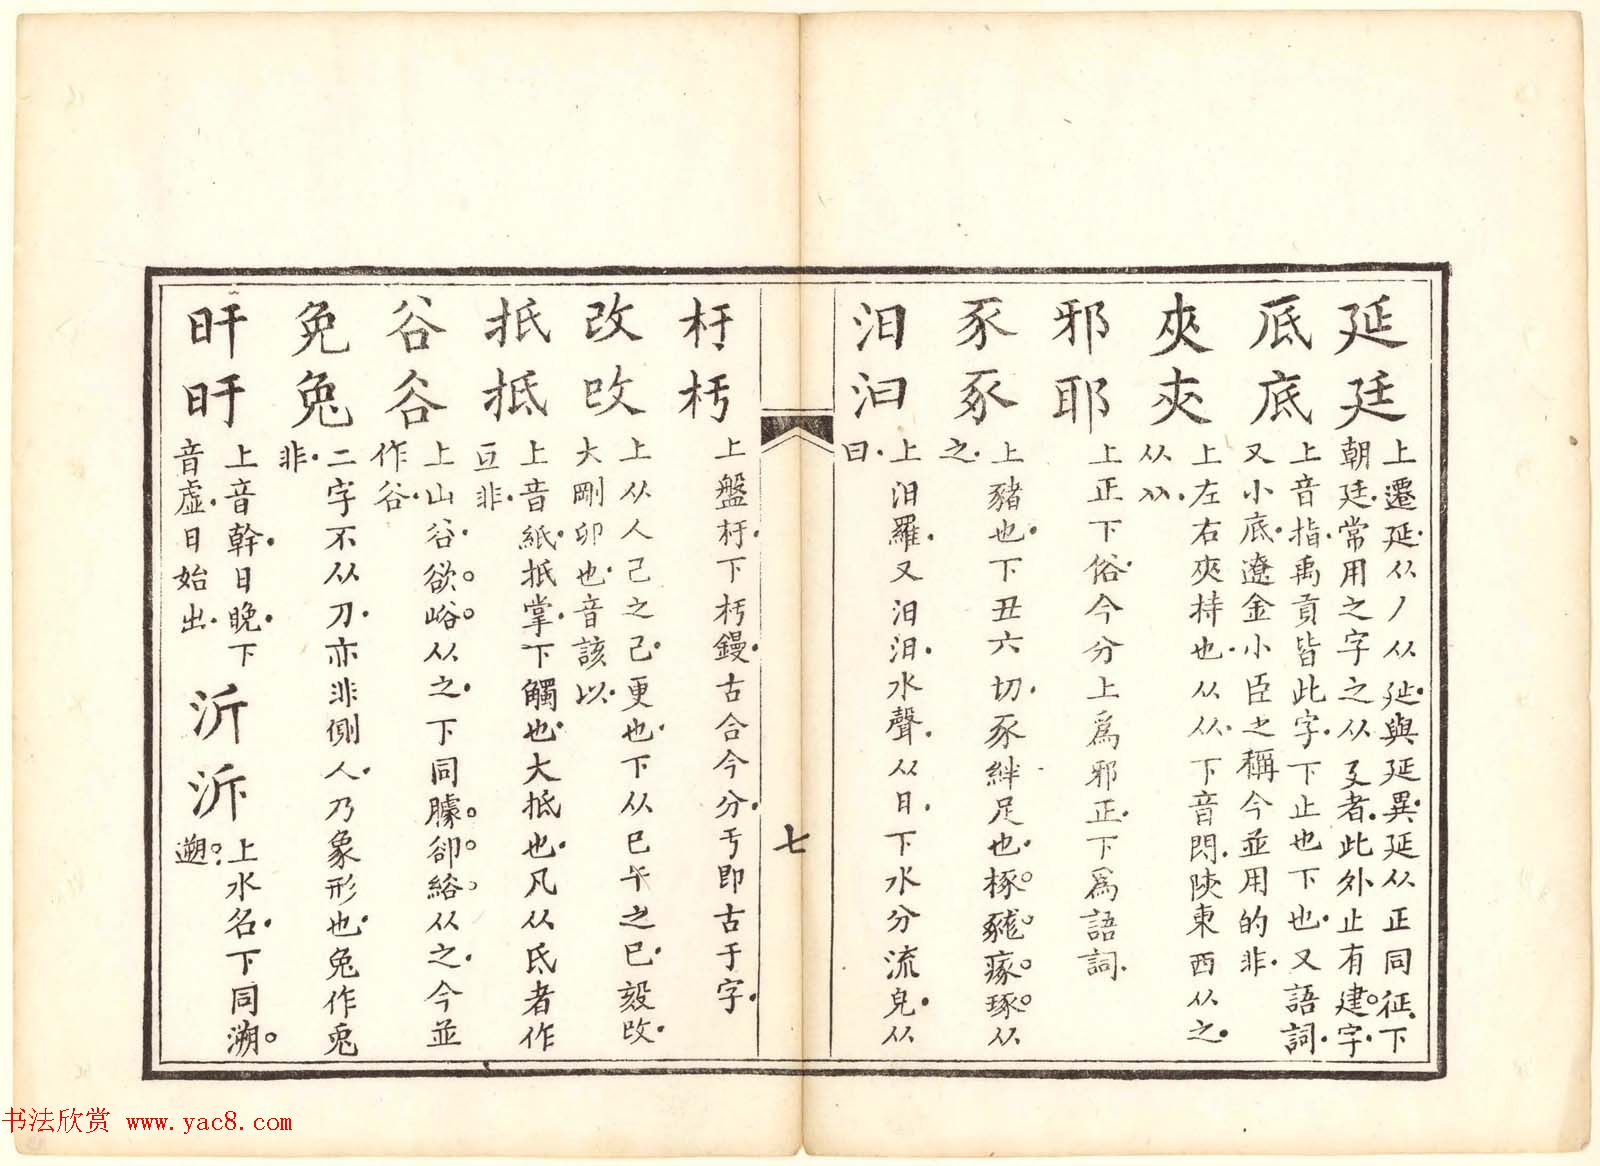 延廷
上遷延从丿从㢟與延異延从正同征下
朝廷常用之字之从㕛者此外止有建字
厎底
上音指禹貢皆此字下止也下也又語詞
又小底遼金小臣之稱今並用的非
夾夾
上左右夾持也从从下音閃陝東西从之
从㒳
邪耶
上正下俗今分上爲邪正下爲語詞
豕豖
上豬也下丑六切豖絆足也椓瘃琢从
之
汨汩
上汨羅又汨汨水聲从日下水分流皃从
曰
七
杅杇
上盤杅下杇鏝古合今分亐即古于字
改攺
上从人己之己更也下从巳午之巳毅攺
大剛卯也音該以
抵抵
上音紙抵掌下觸也大抵也凡从氐者作
互非
谷谷
上山谷欲峪从之下同臄卻綌从之今並
作谷
免兔
二字不从刀亦非側人乃象形也兔作兎
非
旰旴
上音幹日晚下
音虛日始出
沂泝
上水名下同溯
遡
书法欣赏 www.yac8.com